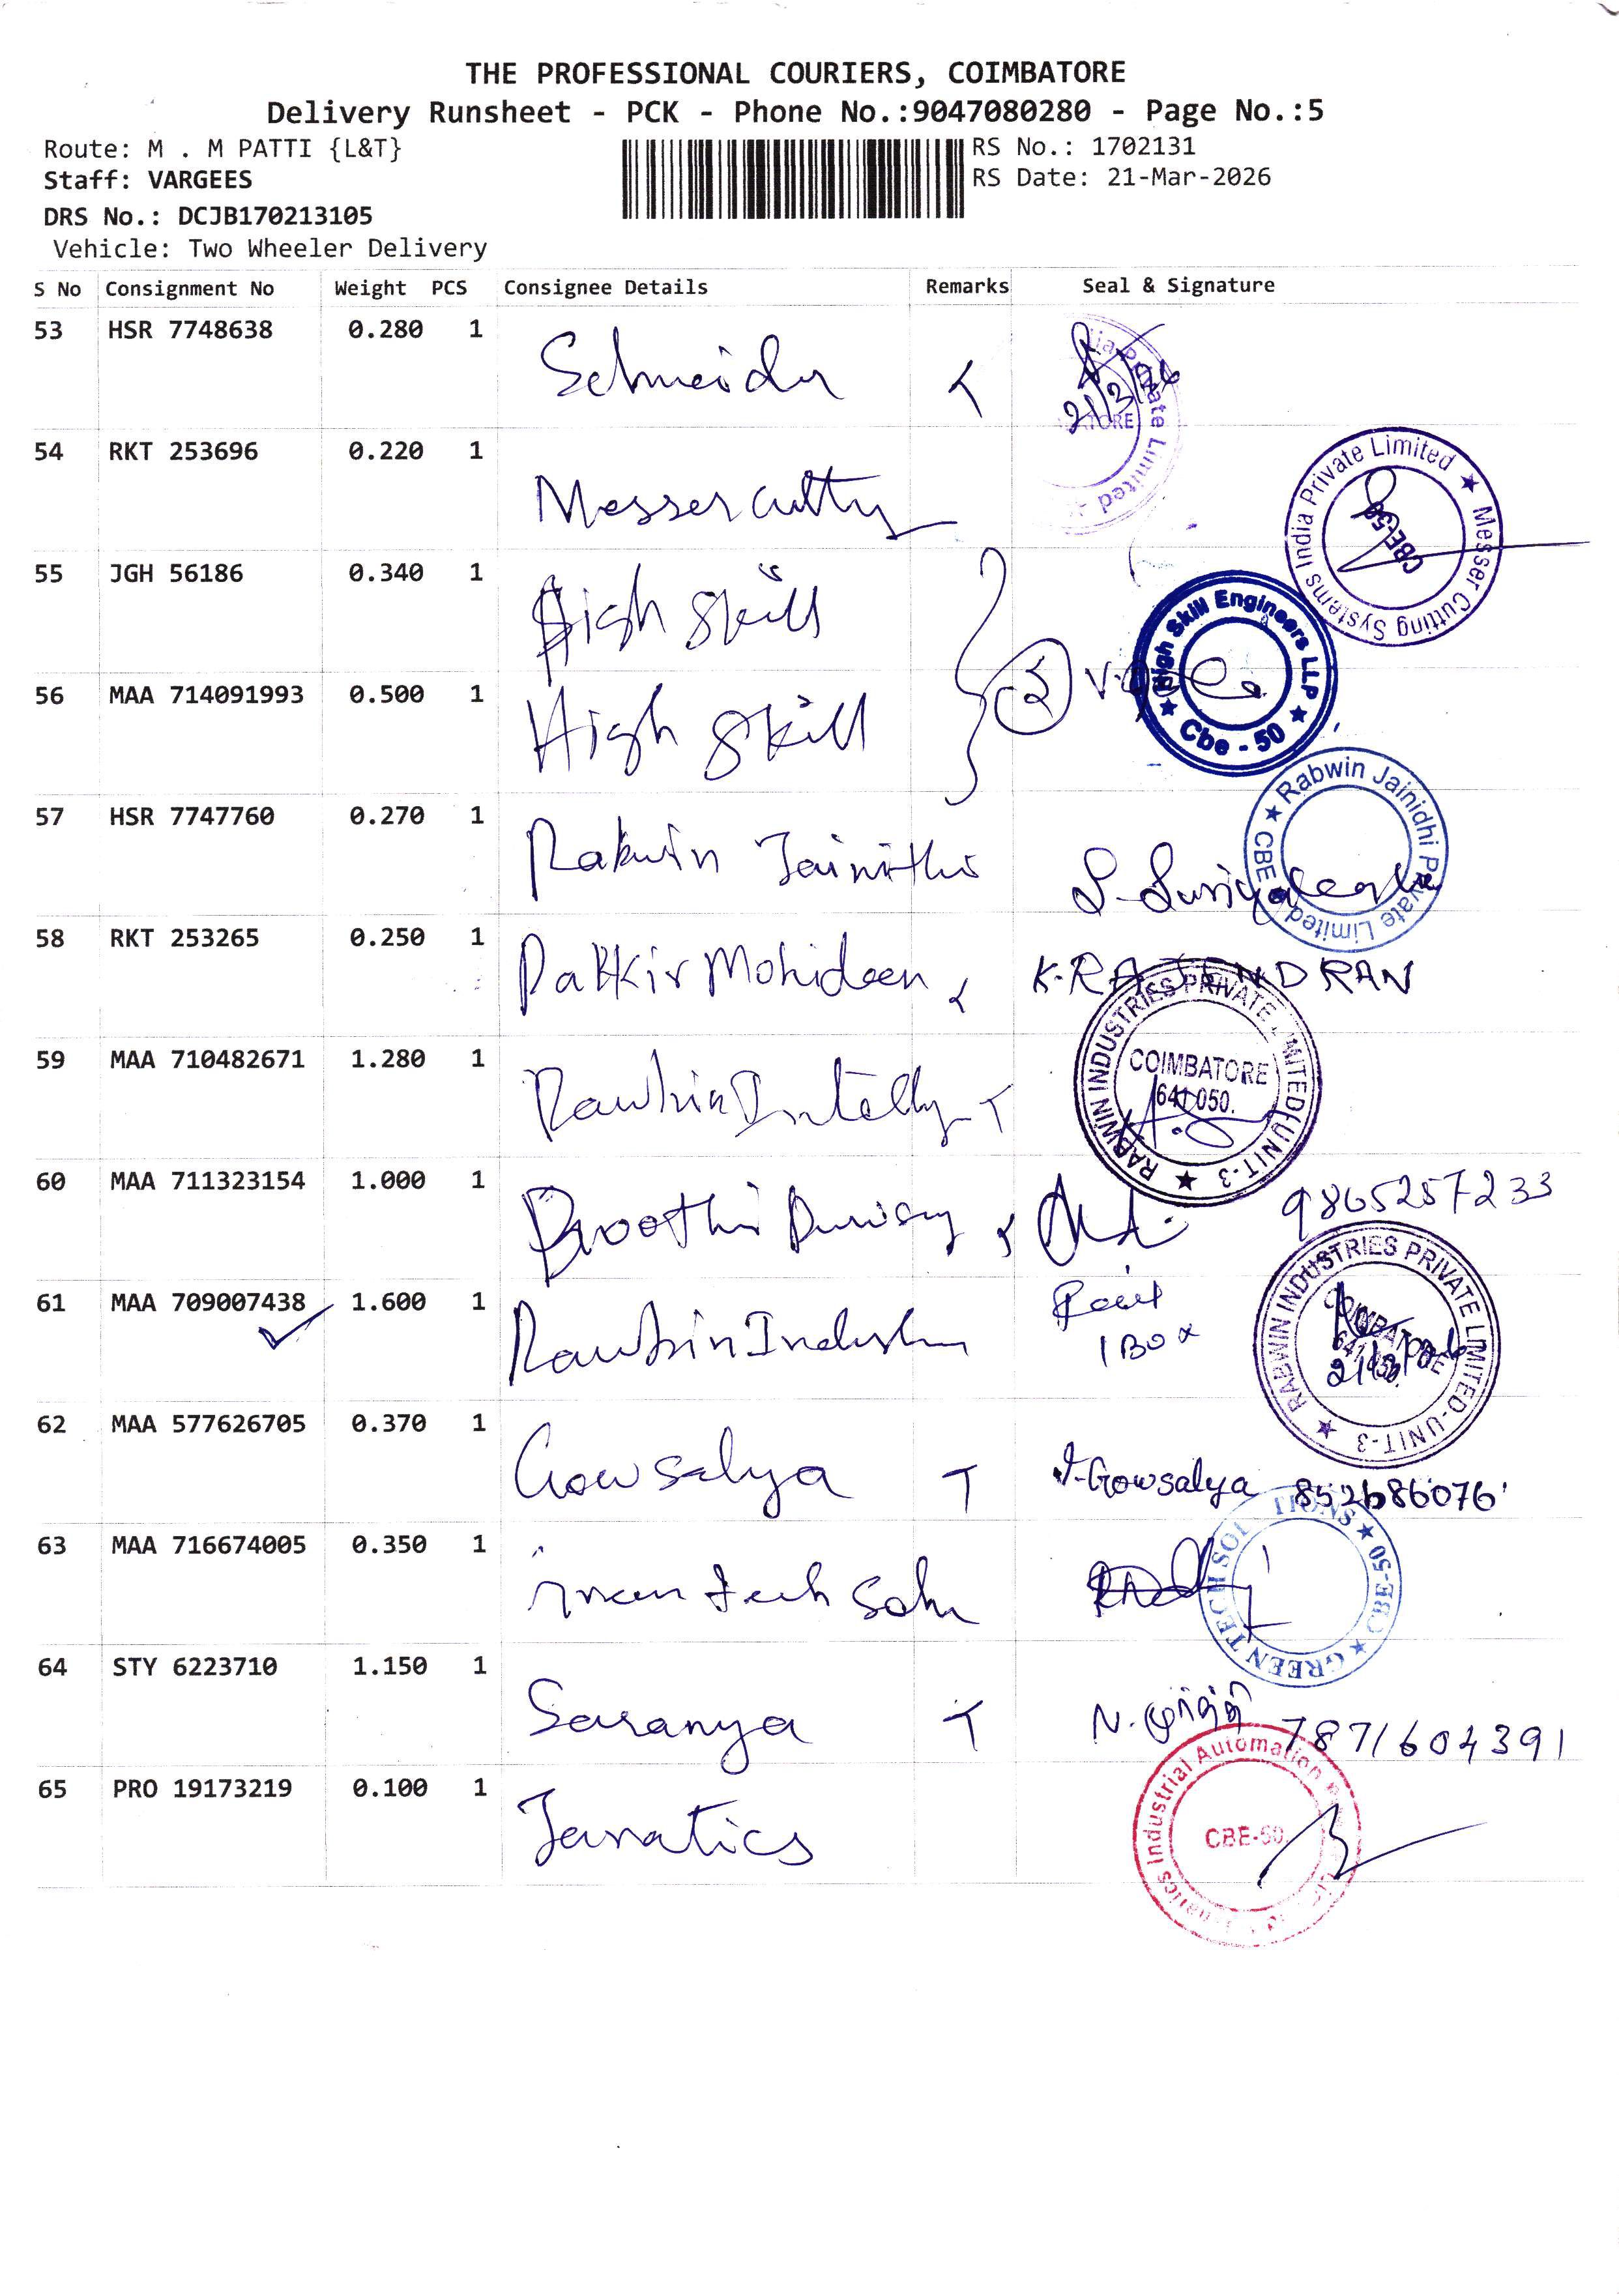 THE PROFESSIONAL COURIERS, COIMBATORE
Delivery Runsheet - PCK - Phone No.:9047080280 - Page No.:5
Route: M . M PATTI {L&T}
RS No.: 1702131
Staff: VARGEES
RS Date: 21-Mar-2026
DRS No.: DCJB170213105
Vehicle: Two Wheeler Delivery
S No Consignment No Weight PCS Consignee Details Remarks Seal & Signature
53 HSR 7748638 0.280 1 Schneider
21/3/26
54 RKT 253696 0.220 1 Messer
Messer Cutting Systems India Private Limited ★
CBE-50
55 JGH 56186 0.340 1 High Skill
High Skill Engineers LLP
★ Cbe - 50 ★
56 MAA 714091993 0.500 1 High Skill
57 HSR 7747760 0.270 1 Rabwin Jainithi
★ Rabwin Jainidhi Private Limited ★ CBE
58 RKT 253265 0.250 1 Pakkir Mohideen K.RAJENDRAN
RABWIN INDUSTRIES PRIVATE LIMITED UNIT-3 ★
COIMBATORE
641 050.
59 MAA 710482671 1.280 1
60 MAA 711323154 1.000 1 9865257233
61 MAA 709007438 1.600 1
1 BOX
RABWIN INDUSTRIES PRIVATE LIMITED-UNIT-3 ★
COIMBATORE
62 MAA 577626705 0.370 1 Gowsalya Gowsalya 852686076
63 MAA 716674005 0.350 1
GREEN TECH SOLUTIONS ★ CBE-50 ★
64 STY 6223710 1.150 1 Saranya N. மூர்த்தி 7871604391
65 PRO 19173219 0.100 1 Janatics
Industrial Automation
CBE-50.